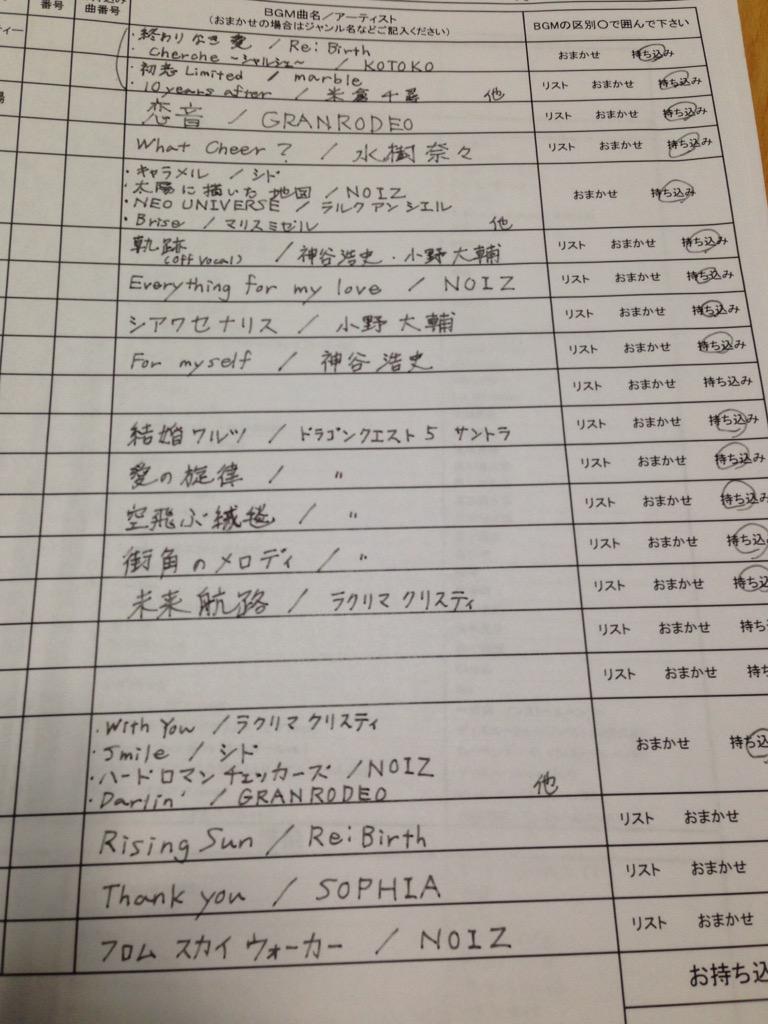 番号
曲番号
BGM曲名／アーティスト
(おまかせの場合はジャンル名などご記入ください)
BGMの区別〇で囲んで下さい
・終わりなき夏 / Re:Birth
・Cherche ～シャルシェ～ / KOTOKO
おまかせ 持ち込み
・初恋 Limited / marble
・10 years after / 米倉千尋 他
リスト おまかせ 持ち込み
恋音 / GRANRODEO
リスト おまかせ 持ち込み
What Cheer? / 水樹奈々
リスト おまかせ 持ち込み
・キャラメル / シド
・太陽に描いた地図 / NOIZ
・NEO UNIVERSE / ラルクアンシエル
・Brise / マリスミゼル 他
おまかせ 持ち込み
軌跡 (off vocal) / 神谷浩史・小野大輔
リスト おまかせ 持ち込み
Everything for my love / NOIZ
リスト おまかせ 持ち込み
シアワセナリス / 小野大輔
リスト おまかせ 持ち込み
For myself / 神谷浩史
リスト おまかせ 持ち込み
リスト おまかせ 持ち込み
結婚ワルツ / ドラゴンクエスト5 サントラ
リスト おまかせ 持ち込み
愛の旋律 / 〃
リスト おまかせ 持ち込み
空飛ぶ絨毯 / 〃
リスト おまかせ 持ち込み
街角のメロディ / 〃
リスト おまかせ 持ち込
未来航路 / ラクリマ クリスティ
リスト おまかせ 持ち込
リスト おまかせ 持ち
リスト おまかせ 持ち
・With You / ラクリマ クリスティ
・Smile / シド
・ハードロマンチェッカーズ / NOIZ
・Darlin' / GRANRODEO 他
おまかせ 持ち込
Rising Sun / Re:Birth
リスト おまかせ
Thank you / SOPHIA
リスト おまかせ
フロム スカイ ウォーカー / NOIZ
リスト おまかせ
お持ち込